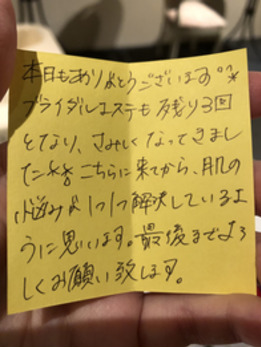 本日もありがとうございます◦°*
ブライダルエステも残り3回
となり、さみしくなってきまし
た** こちらに来てから、肌の
悩みが1つ1つ解決しているよ
うに思います。最後までよろ
しくお願い致します。